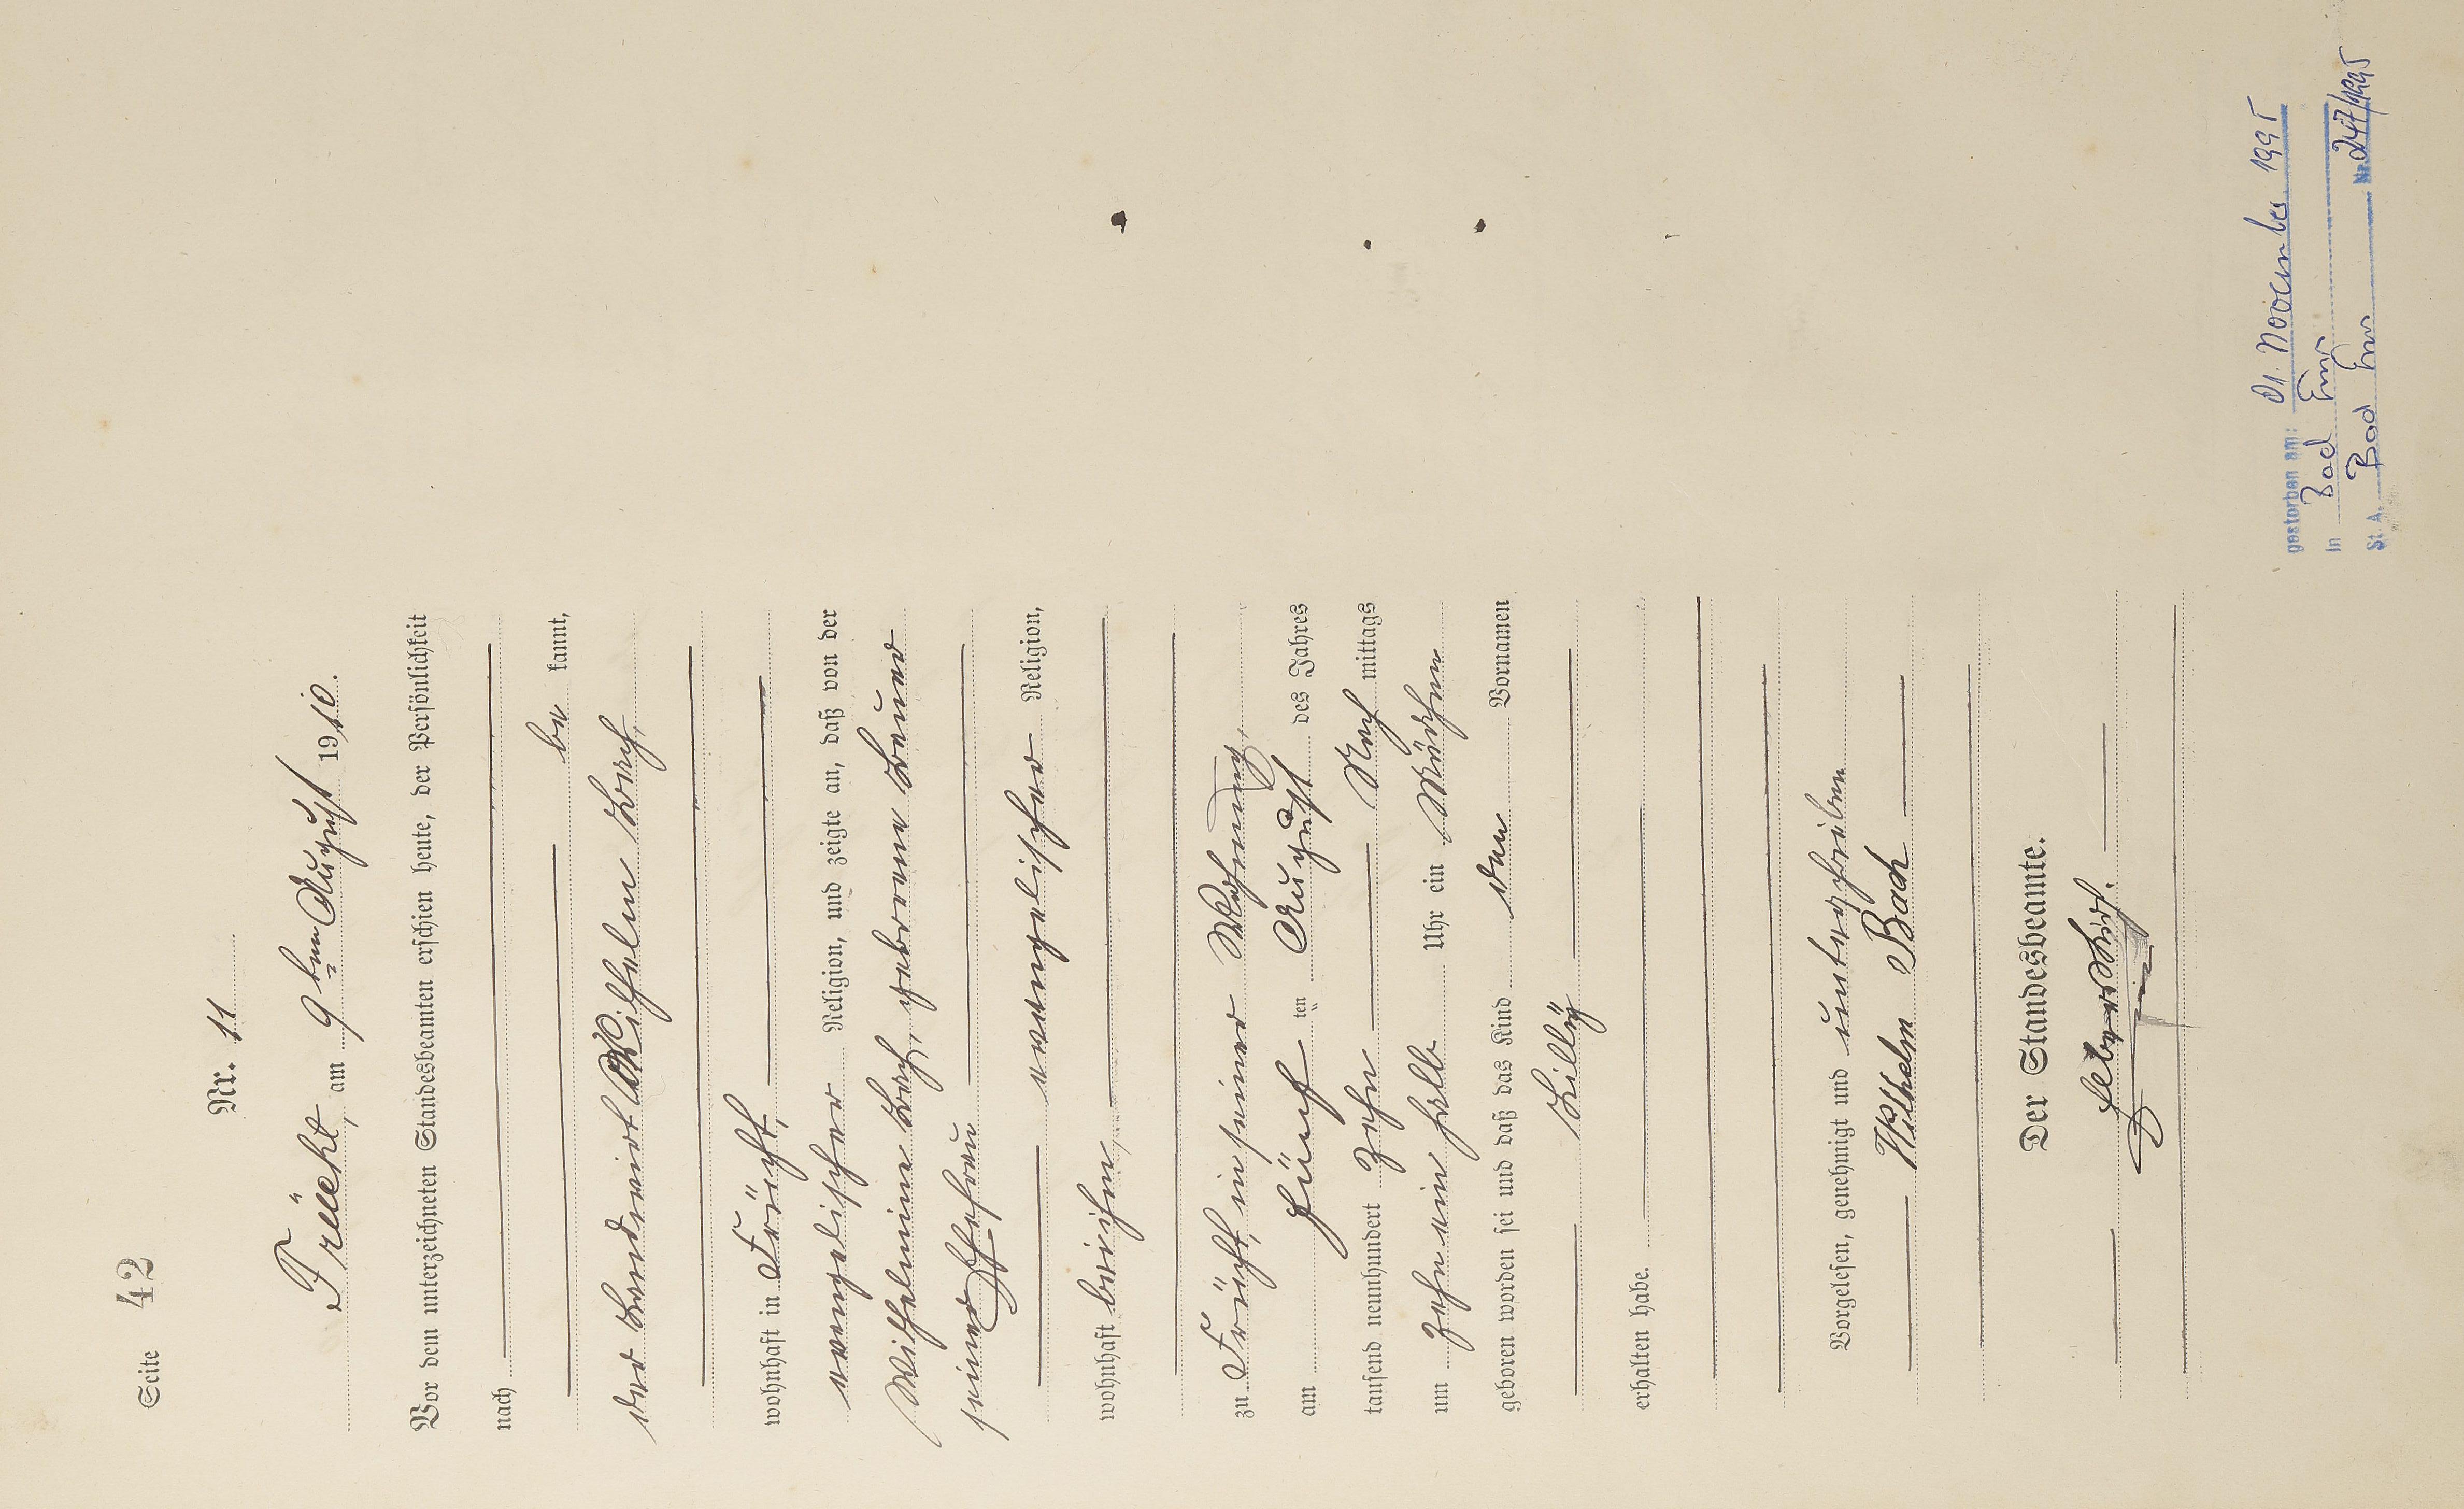 Seite 42
Nr. 11
Frücht, am 9ten August 1910.
Vor dem unterzeichneten Standesbeamten erschien heute, der Persönlichkeit
nach
be kannt,
der Landwirt Wilhelm Bach,
wohnhaft in Frücht,
evangelischer Religion, und zeigte an, daß von der
Wilhelmine Bach, geborene Bauer
seiner Ehefrau
evangelischer Religion,
wohnhaft bei ihm,
zu Frücht, in seiner Wohnung,
am fünf ten August des Jahres
tausend neunhundert zehn Nach mittags
um zehn ein halb Uhr ein Mädchen
geboren worden sei und daß das Kind den Vornamen
Lilly
erhalten habe.
Vorgelesen, genehmigt und unterschrieben
Wilhelm Bach
Der Standesbeamte.
gestorben am: 01. November 1995
in Bad Ems
St. A. Bad Ems Nr. 247/1995